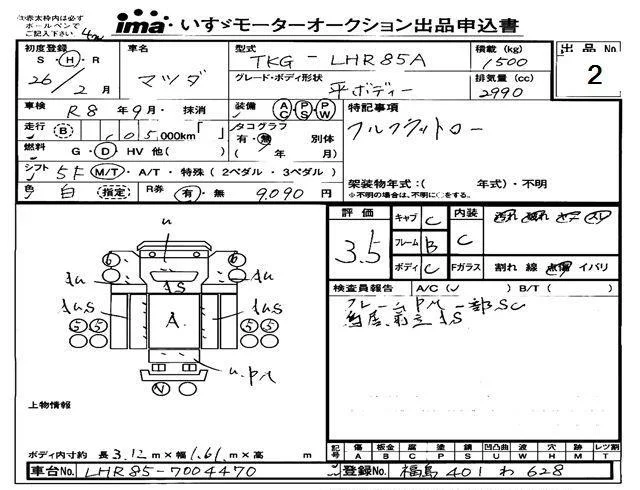 ※太枠内は必ず
ボールペンで
ご記入下さい
ima いすゞモーターオークション出品申込書
初度登録 S・H・R 26/2月
車名 マツダ
型式 TKG-LHR85A
積載(kg) 1500
出品No 2
グレード・ボディ形状 平ボディー
排気量(cc) 2990
車検 R8年9月・抹消
装備 AC PS PW
特記事項
フルフラットロー
走行 (B) 105,000km「 」
タコグラフ 有・無 別体
( 年 月)
燃料 G・D・HV 他( )
シフト 5F M/T・A/T・特殊(2ペダル・3ペダル)
架装物年式:( 年式)・不明
※不明の場合は、不明に○をする。
色 白 (指定)
R券 有・無 9,090円
評価 3.5
キャブ C
フレーム B
ボディ C
内装 C
Fガラス 割れ 線 点傷 イバリ
検査員報告 A/C( ) B/T( )
フレームPM一部SC
鳥居、前立 AS
u
AS
Au
Au
AuS
AuS
A
6
6
5 5
5 5
u.PM
N
上物情報
ボディ内寸約 長3.12m×幅1.61m×高 m
記号 傷A 板金B 腐C 塗P 錆S 凹凸曲U 波W 穴H 跡M レツ割T
車台No. LHR85-7004470
登録No. 福島 401 わ 628